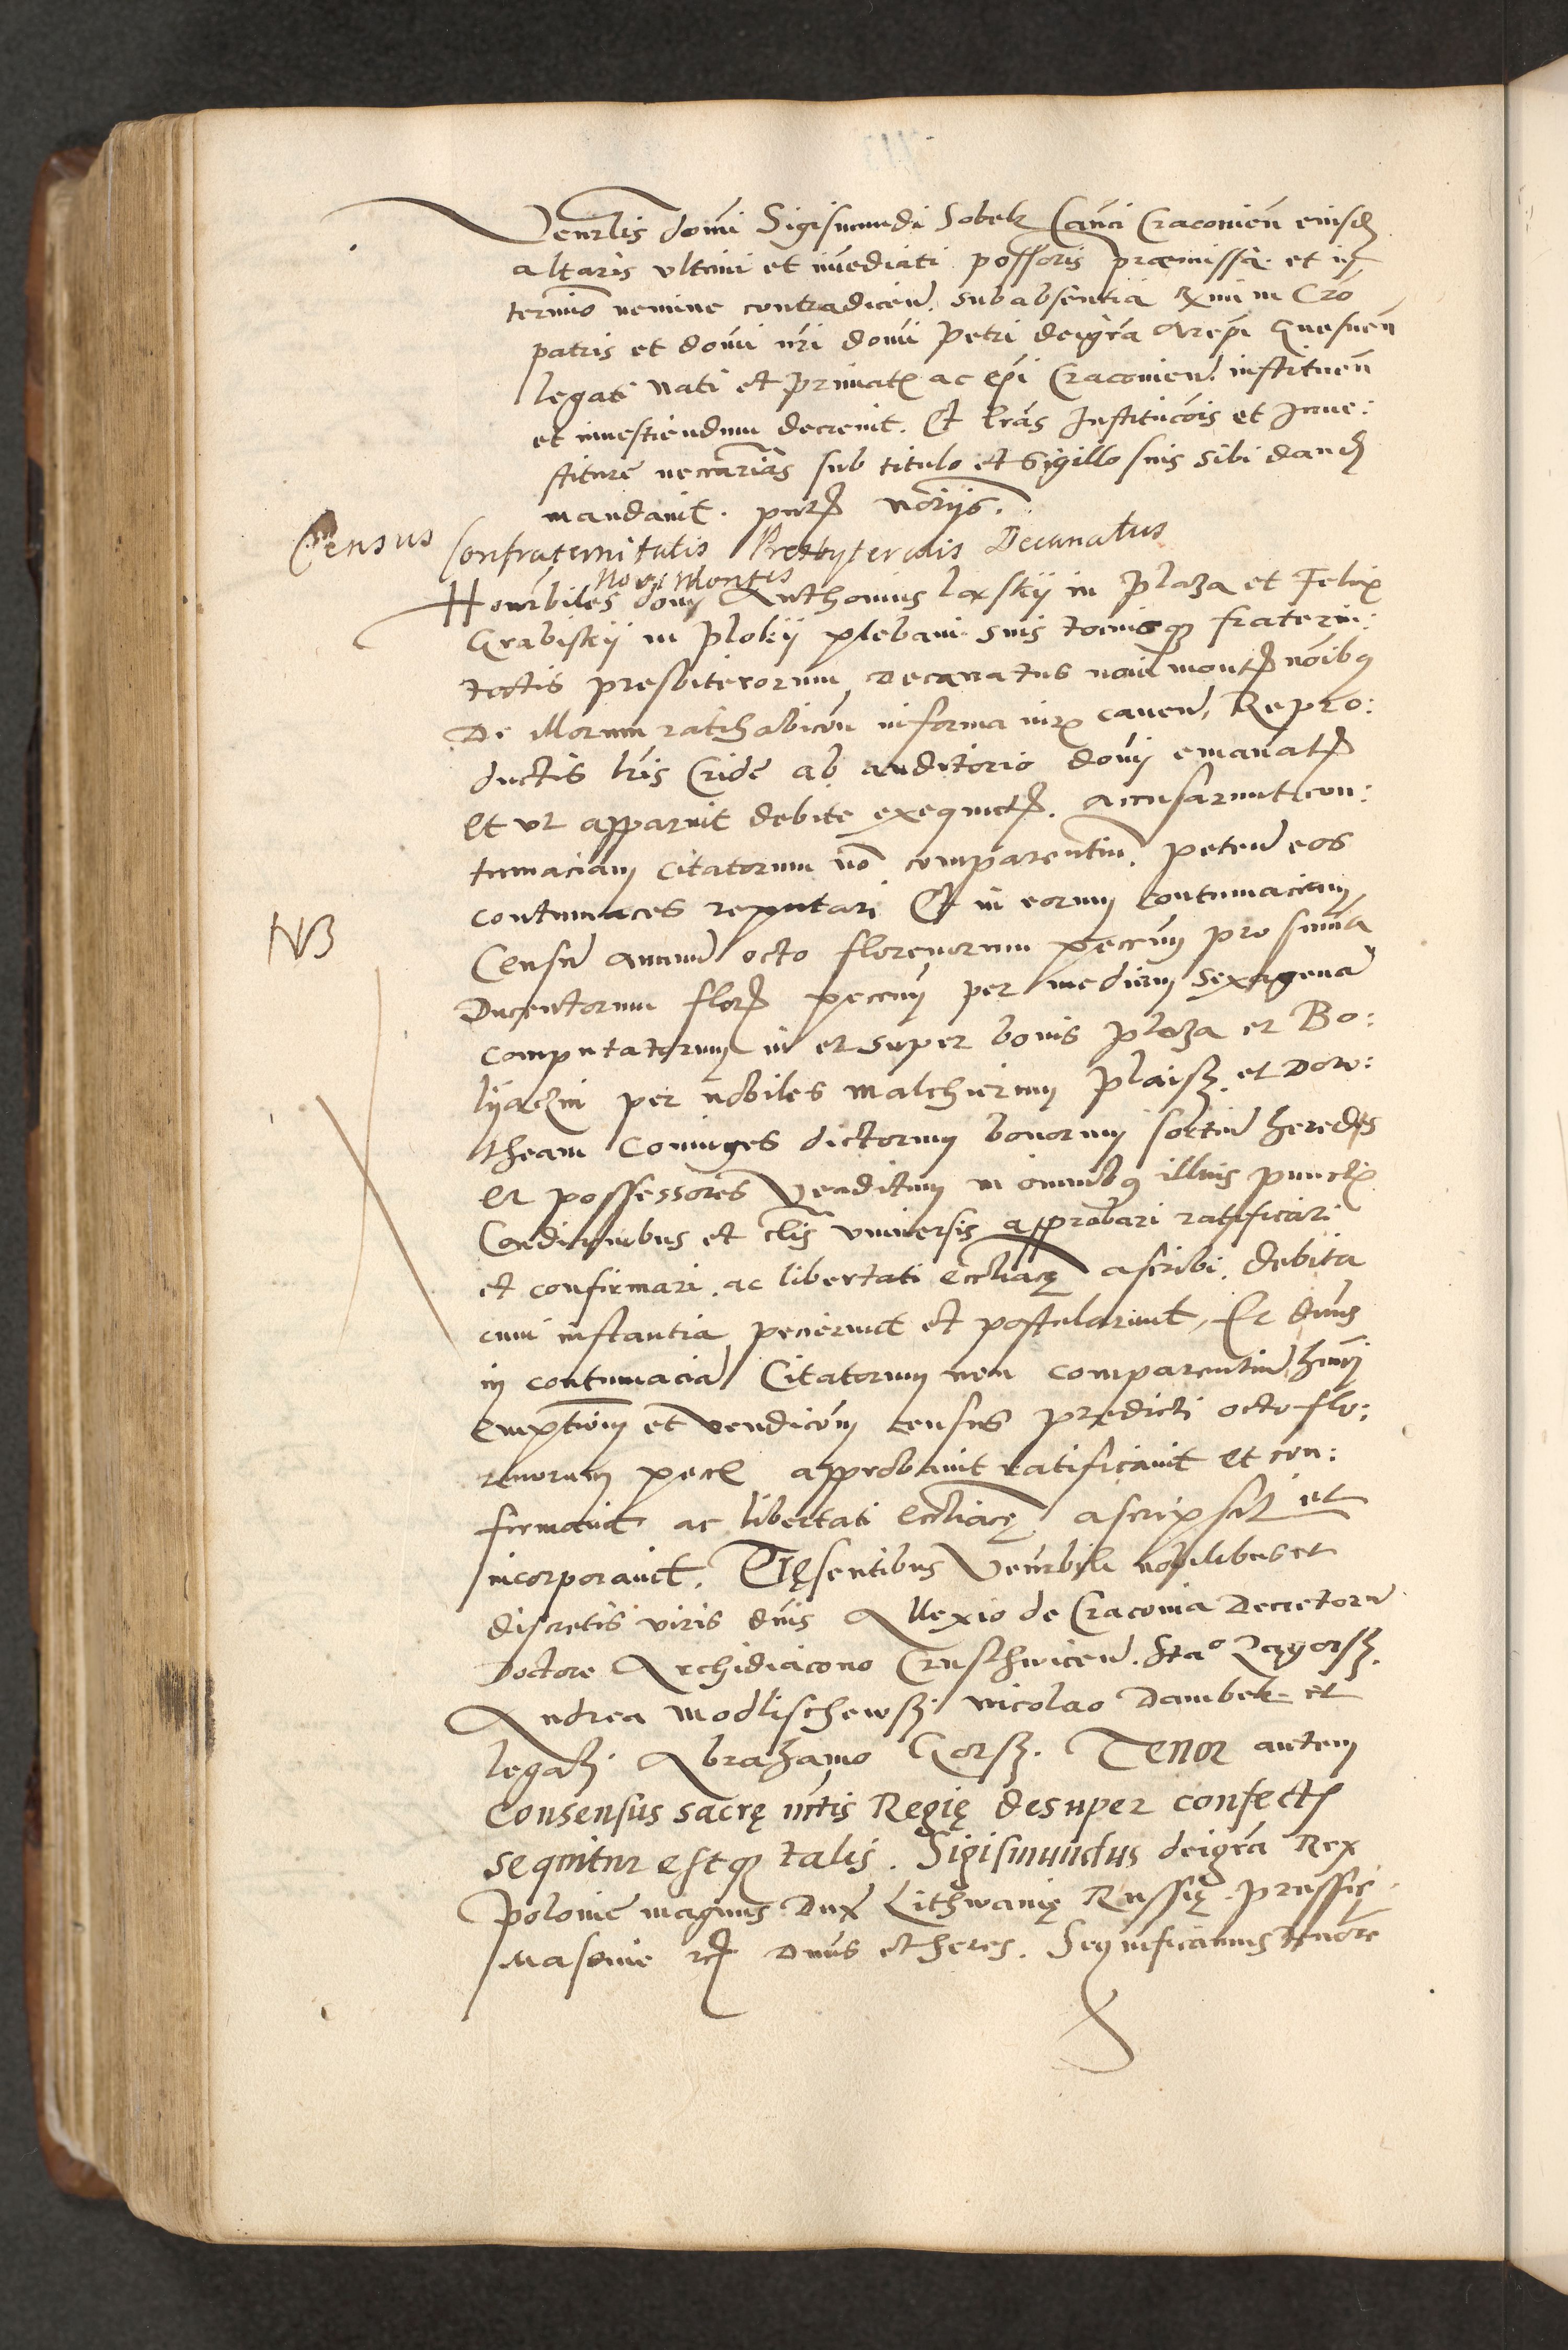 Venerlis domi Sigismundi Sobek Canci Craconien eiusd
altaris vltimi et imediati possoris præmissa. et in
termino nemine contradicen. sub absentia Rximi in Cro
patris et domi nri domi Petri deigra Arepi Gnesnen
legati nati et primatis ac epi Craconien. instituen
et inuestiendum decreuit. Et lras Institucois et Inue:
stiture necrarias sub titulo et Sigillo suis sibi dand
mandauit. pntb norijs.
Census Confraternitatis Presbyteralis Decanatus
Novi Montis
Honrbiles domi Anthonius laskij in Plaza et Felix
Grabiskij in Plokij plebani suis tociusq fraterni:
tatis presbiterorum Decanatus noui mont noibq
De illorum ratihabicon in forma iuris cauen, Repro:
ductis lris Cride ab auditorio domi emanat
et vt apparuit debite exequut. accusarunt con:
tumaciam citatorum no comparentiu. peten eos
contumaces reputari Et in eorum contumaciam
NB
Censu annuu octo florenorum peccun pro suma
Ducentorum flor peccun per mediam sexagena
computatorum in et super bonis plaza et Bo:
lijaczin per nobiles Malchierum Plaisz et Doro:
theam Coniuges dictorum bonorum sortiu heredes
et possessores venditum in omnibq illius punctis
Condicionibus et clis vniuersis approbari ratificari
et confirmari. ac libertati eccliacę ascribi. debita
cum instantia petierunt et postularunt, Et dnus
in contumacia Citatorum non comparentiu hmoi
emptionem et vendicom census predicti octo flo:
renorum pecc approbauit ratificauit et con:
firmauit ac libertati eccliacę ascripsit et
incorporauit. Pręsentibus Venrbili nobilibus et
discretis viris dnis Allexio de Craconia Decretoru
Doctore Archidiacono Crusphwicen. Stao Zagorsz.
Andrea Modlischewsz Nicolao Dambek et
Abrahamo Gorsz. Tenor autem
Consensus sacrę mtis Regię desuper confect
sequitur estq talis. Sigismundus deigra Rex
Polonie magnus Dux Lithwanię Russię. prussie.
Masouie rc Dnus et heres. Significamus tenore